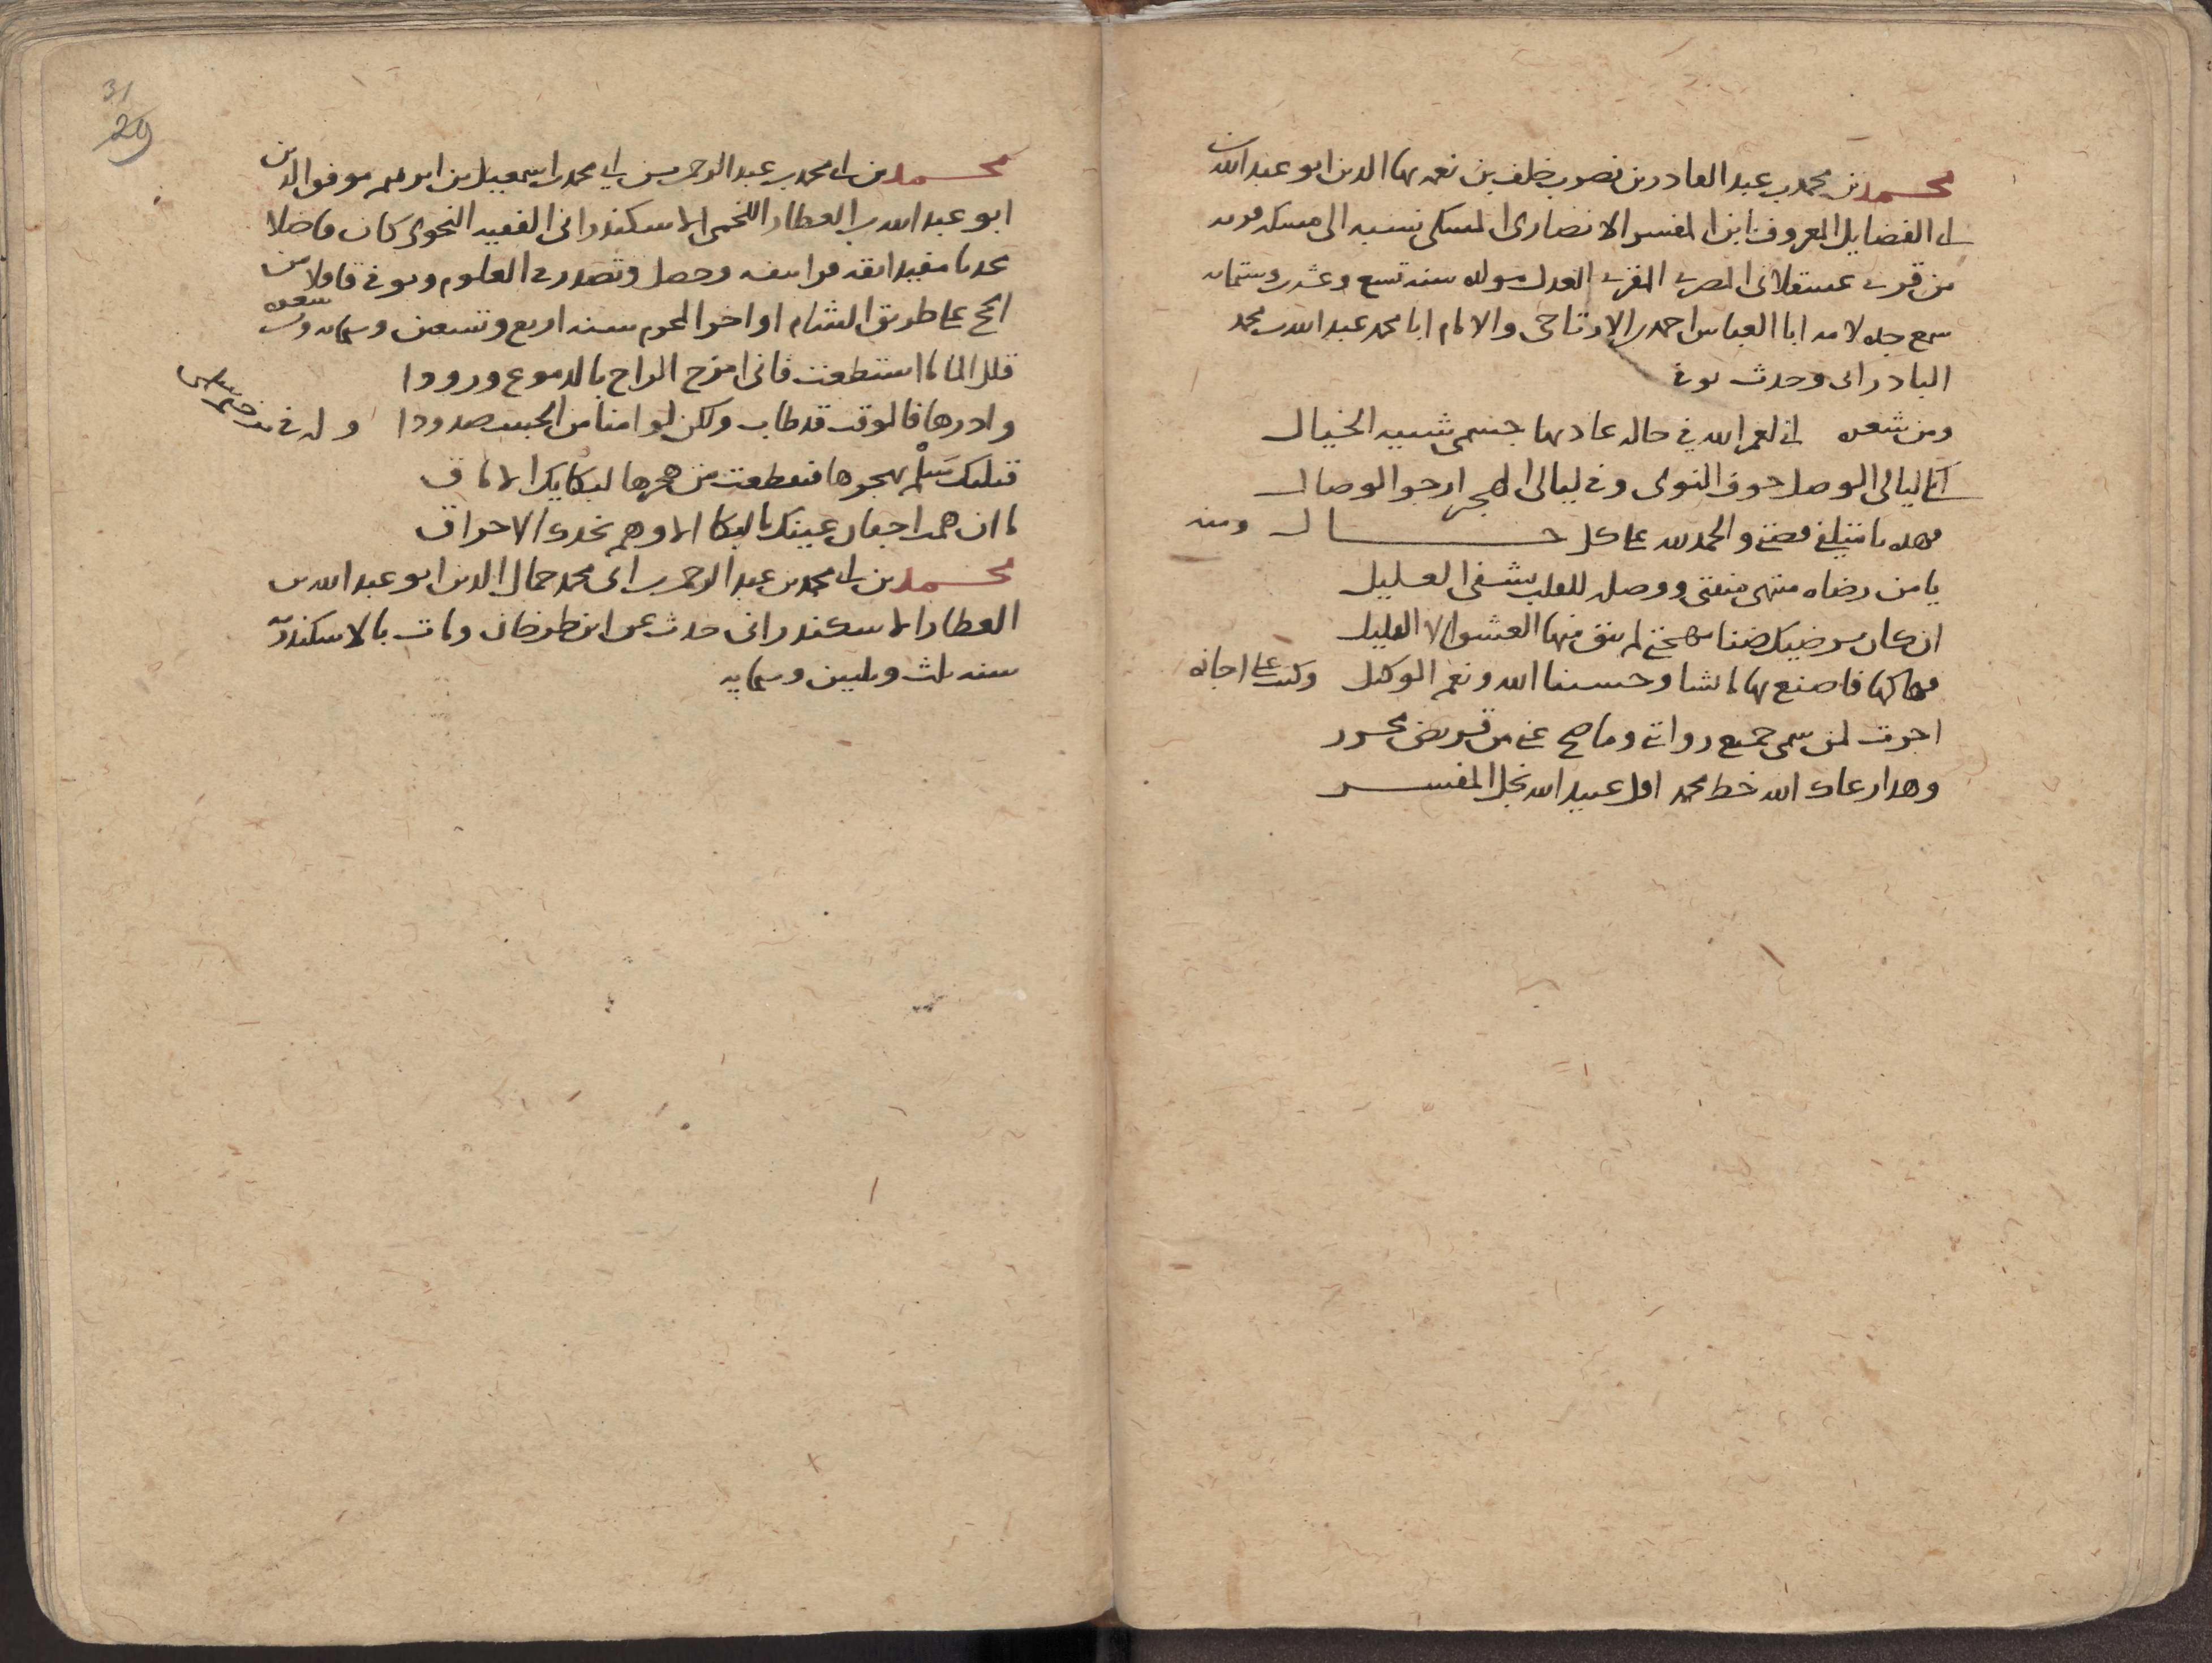 محمد بن محمد بن عبد القادر بن نصر بن خلف بن نعمه بها الدين ابو عبد الله بن
ابى الفضايل المعروف بابن المفسر الانصارى المسكى نسبه الى مسكه قريه
من قرى عسقلان المصرى المقرى العدل مولده سنه تسع وعشر وستمايه
سمع جده لامه ابا العباس احمد الارتاحى والامام ابا محمد عبد الله بن محمد
البادرائى وحدث توفى
ومن شعره انى لعمر الله فى حاله عاد بها جسمى شبيه الخيال
ابكى ليالى الوصل خوف النوى وفى ليالى الهجر ارجو الوصال
فهذه ما تنقضى والحمد لله على كل حال ومنه
يا من رضاه منتهى منيتى ووصله للقلب يشفى العليل
ان كان يرضيك ضنا مهجتى لم يبق منها العشق الا القليل
فهاكها فاصنع بها ما تشا وحسبنا الله ونعم الوكيل وكتب على اجازه
اجزت لمن سمى جميع روايتى وما صح عنى من قريض محرر
وهذا رعاك الله خط محمد اقل عبيد الله نجل المفسر
31
29
محمد بن ابى محمد بن عبد الرحمن بن ابى محمد بن اسمعيل بن ابرهيم موفق الدين
ابو عبد الله بن العطار اللخمى الاسكندرانى الفقيه النحوى كان فاضلا
محدثا مفيدا وحصل وتصدر العلوم وتوفى قافلا من
الحج على طريق الشام اواخر المحرم سنه اربع وتسعين وستمايه ومن شعره
قلل الما ما استطعت فانى امزج الراح بالدموع ورودا
وادرها فالوقت قد طاب ولكن لو امنا من الحبيب صدودا وله فى
قتلتك سلم بهجرها فتقطعت من هجرها لبكايك الاماق
ما ان همت اجفان عينك بالبكا الا وهم بخدك الاحراق
محمد بن ابى محمد بن عبد الرحمن بن ابى محمد جمال الدين ابو عبد الله بن
العطار الاسكندرانى حدث عن ابن طرخان ومات بالاسكندريه
سنه ثلث وثمنين وستمايه